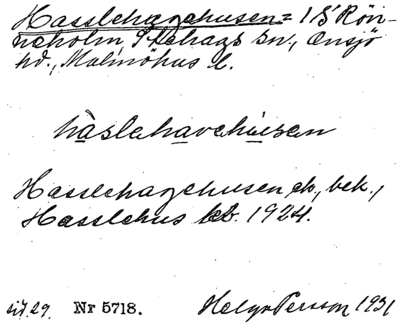 Hasslehagehusen = 1 S Rön-
neholm Stehags sn., Onsjö
hd., Malmöhus l.
hàslehavehusen
Hasslehagehusen ek., bek.,
Hasslehus kb. 1924.
Nr 5718. Helge Persson 1931